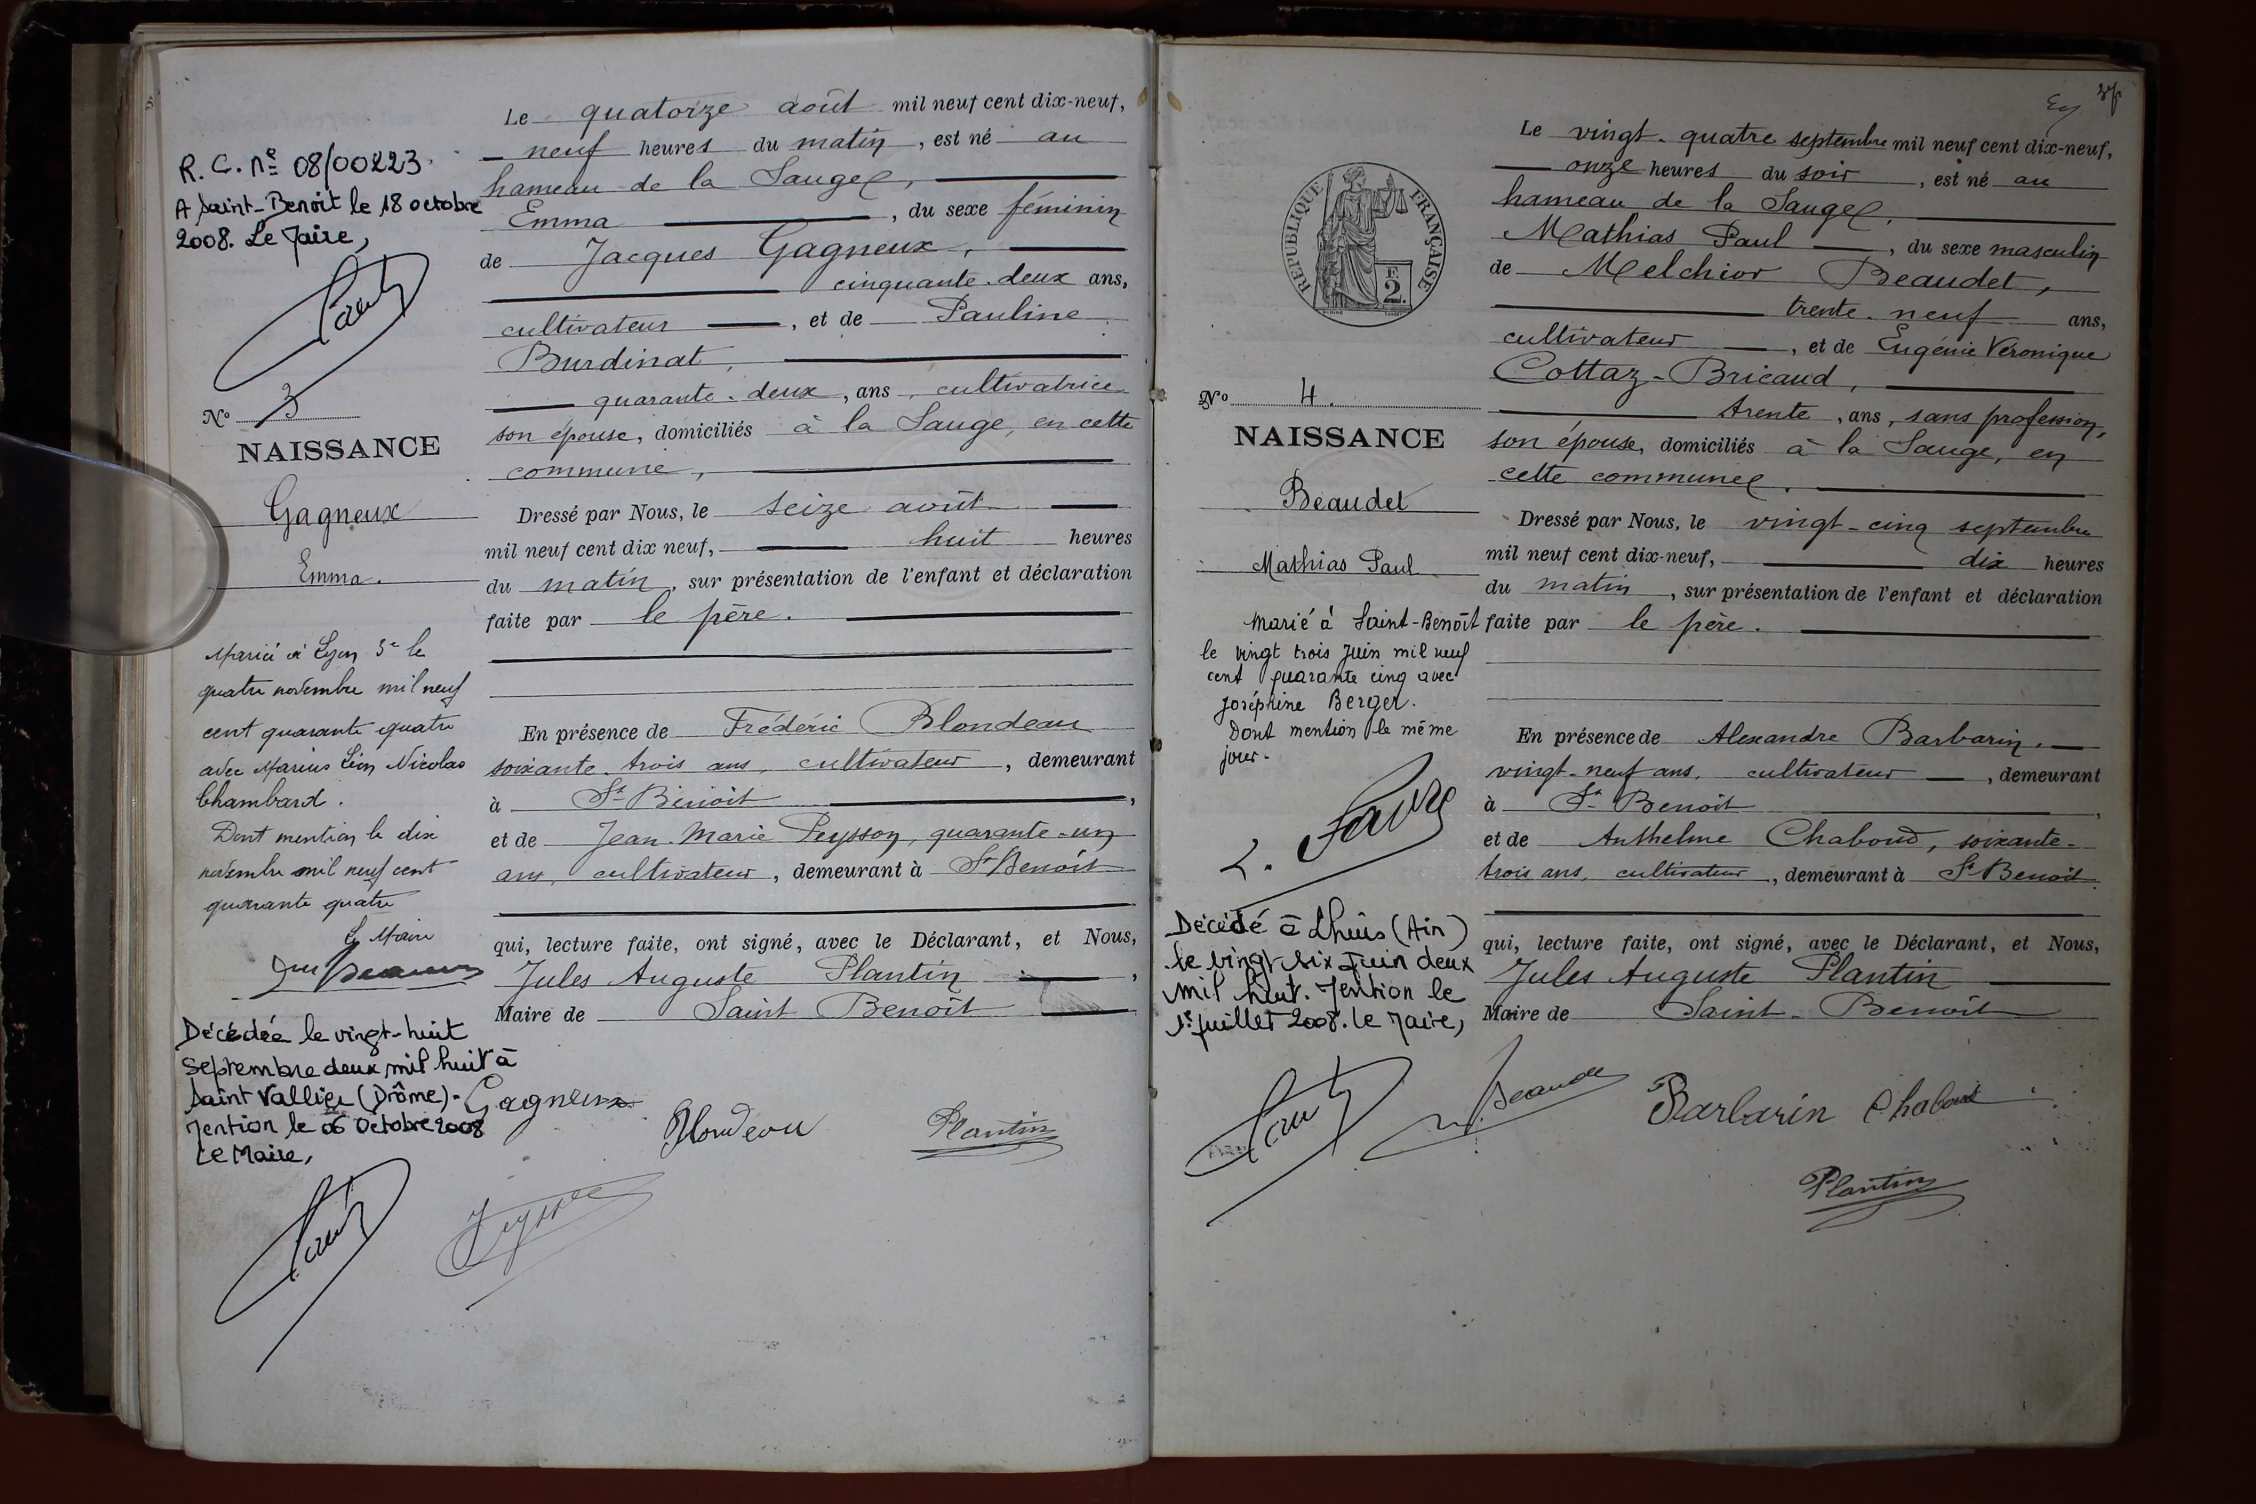 R. C. n° 08/00223.
A Saint-Benoît le 18 octobre
2008. Le Maire,
N° 3
NAISSANCE
Gagneux
Emma.
Mariée à Lyon 3e le
quatre novembre mil neuf
cent quarante quatre
avec Marius Léon Nicolas
Chambard.
Dont mention le dix
novembre mil neuf cent
quarante quatre
Le Maire
Décédée le vingt-huit
septembre deux mil huit à
Saint Vallier (Drôme).
Mention le 06 octobre 2008
Le Maire,
Le quatorze août mil neuf cent dix-neuf,
neuf heures du matin, est né au
hameau de la Sauge,
Emma, du sexe féminin
de Jacques Gagneux,
cinquante-deux ans,
cultivateur, et de Pauline
Burdinat,
quarante-deux, ans, cultivatrice
son épouse, domiciliés à la Sauge, en cette
commune,
Dressé par Nous, le seize août
mil neuf cent dix neuf, huit heures
du matin, sur présentation de l'enfant et déclaration
faite par le père.
En présence de Frédéric Blondeau
soixante-trois ans, cultivateur, demeurant
à St Benoit,
et de Jean-Marie Peysson, quarante-un
ans, cultivateur, demeurant à St Benoit
qui, lecture faite, ont signé, avec le Déclarant, et Nous,
Jules Auguste Plantin,
Maire de Saint Benoît
Gagneux
Blondeau
Plantin
Peysson
REPUBLIQUE FRANÇAISE
2
N° 4.
NAISSANCE
Beaudet
Mathias Paul
Marié à Saint-Benoît
le vingt trois Juin mil neuf
cent quarante cinq avec
Joséphine Berger.
Dont mention le même
jour.
Décédé à Lhuis (Ain)
le vingt six Juin deux
mil huit. Mention le
1er juillet 2008. Le Maire,
Le vingt-quatre septembre mil neuf cent dix-neuf,
onze heures du soir, est né au
hameau de la Sauge,
Mathias Paul, du sexe masculin
de Melchior Beaudet,
trente-neuf ans,
cultivateur, et de Eugénie Véronique
Cottaz-Bricaud,
trente, ans, sans profession,
son épouse, domiciliés à la Sauge, en
cette commune.
Dressé par Nous, le vingt-cinq septembre
mil neuf cent dix-neuf, dix heures
du matin, sur présentation de l'enfant et déclaration
faite par le père.
En présence de Alexandre Barbarin,
vingt-neuf ans, cultivateur, demeurant
à St Benoît,
et de Anthelme Chaboud, soixante-
trois ans, cultivateur, demeurant à St Benoît
qui, lecture faite, ont signé, avec le Déclarant, et Nous,
Jules Auguste Plantin
Maire de Saint-Benoît
Barbarin Chaboud
Plantin